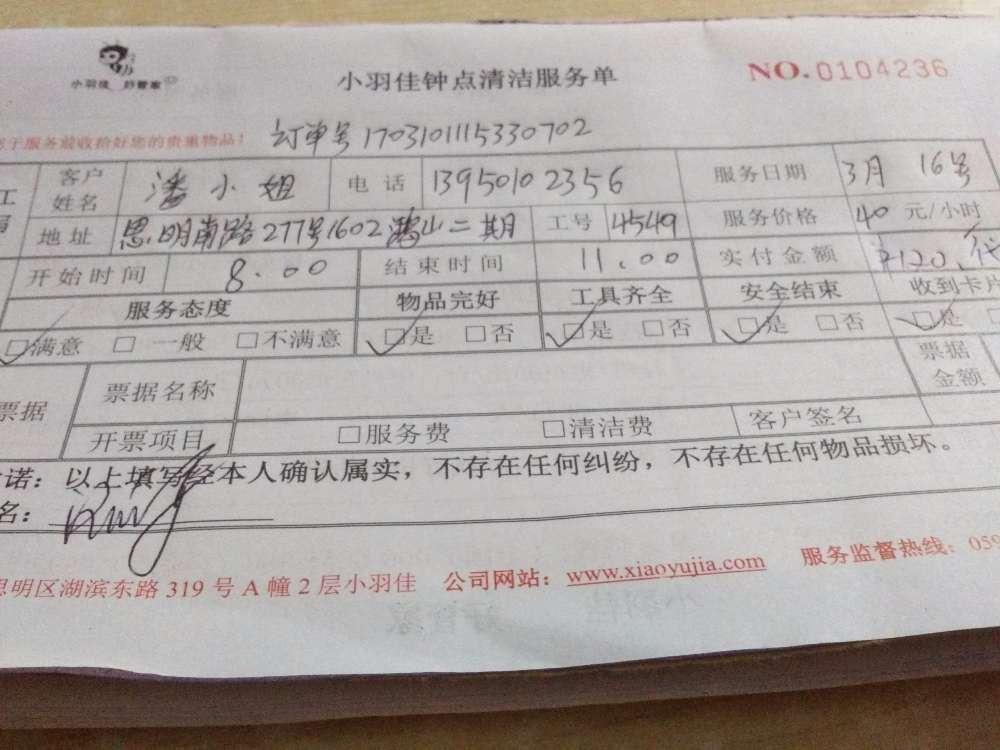 小羽佳 好管家
小羽佳钟点清洁服务单
NO.0104236
于服务前收拾好您的贵重物品！ 订单号 1703101115330702
工 客户姓名 潘小姐 电话 13950102356 服务日期 3月 16号
地址 思明南路277号1602 山二期 工号 4549 服务价格 40 元/小时
开始时间 8.00 结束时间 11.00 实付金额 ¥120.代
服务态度 物品完好 工具齐全 安全结束 收到卡片
□满意 □ 一般 □不满意 □是 □否 □是 □否 □是 □否 □是 □
票据 票据名称 票据金额
开票项目 □服务费 □清洁费 客户签名
诺：以上填写经本人确认属实，不存在任何纠纷，不存在任何物品损坏。
名：
思明区湖滨东路 319 号 A 幢 2 层小羽佳 公司网站：www.xiaoyujia.com 服务监督热线：059